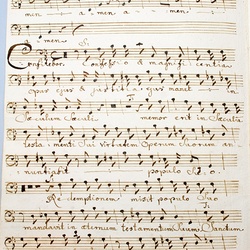 men a men
amen
Confitebor. Confessio & magnifi centia
opus ejus & justitia ejus manet in
Sæculum Sæculi memor erit in Sæculu
testa menti Sui virtutem Operum Suorum an
nuntiabit populo Suo.
Redemptionem misit populo Suo
mandavit in æternum testamentum Suum Sanctum